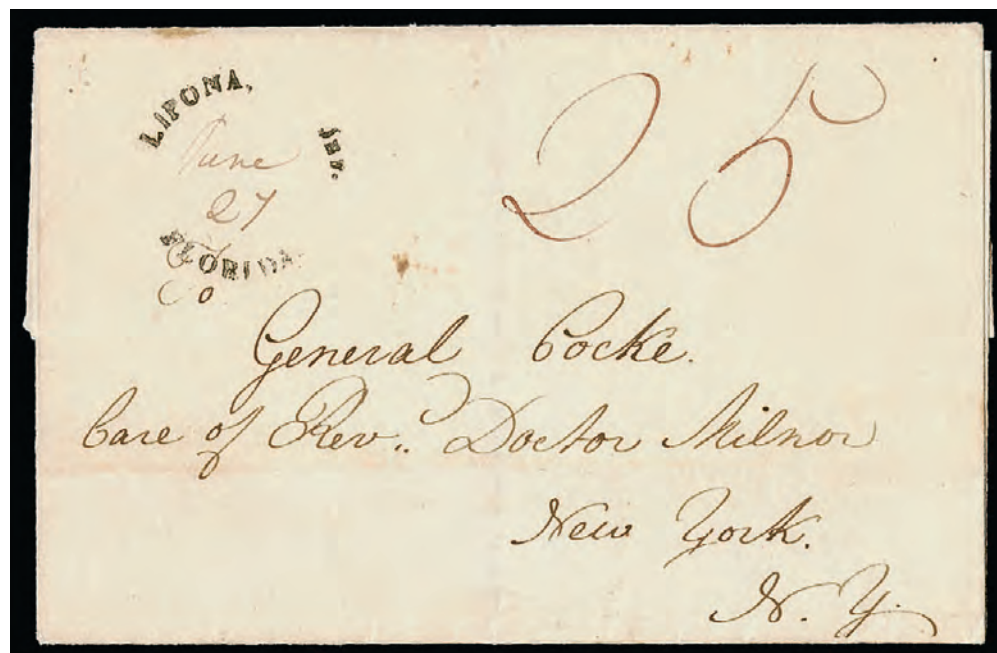 LIPONA, Jef.
June
27
FLORIDA
Co
25
General Cocke.
Care of Rev.. Doctor Milnor
New York.
N. Y.